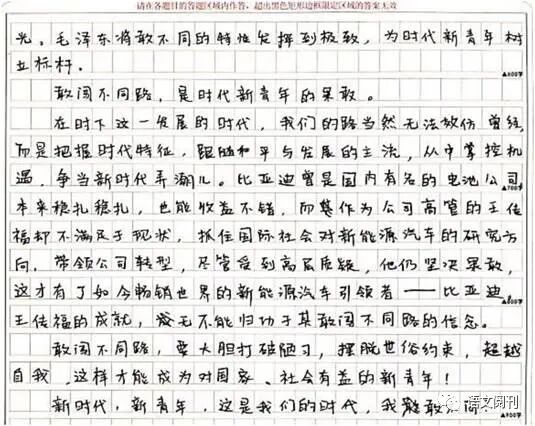 请在各题目的答题区域内作答，超出黑色矩形边框限定区域的答案无效
光。毛泽东将敢不同的特性发挥到极致，为时代新青年树
立标杆。
▲600字
敢闯不同路，是时代新青年的果敢。
在时下这一发展的时代，我们的路当然无法效仿曾经，
而是把握时代特征，跟随和平与发展的主流，从中掌控机
遇，争当新时代弄潮儿。比亚迪曾是国内有名的电池公司
▲700字
本来稳扎稳扎，也能收益不错，而作为公司高管的王传
福却不满足于现状，抓住国际社会对新能源汽车的研究方
向，带领公司转型，尽管受到高层质疑，他仍坚决果敢，
这才有了如今畅销世界的新能源汽车引领者——比亚迪，
▲800字
王传福的成就，无不能归功于其敢闯不同路的信念。
敢闯不同路，要大胆打破陋习，摆脱世俗约束，超越
自我，这样才能成为对国家、社会有益的新青年！
新时代，新青年，这是我们的时代，我敢，
语文阅刊